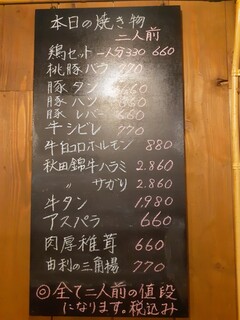 本日の焼き物
二人前
鶏セット 一人分330 660
桃豚バラ 770
豚タン 660
豚ハツ 660
豚レバー 660
牛シビレ 770
牛白コロホルモン 880
秋田錦牛ハラミ 2.860
〃 サガリ 2.860
牛タン 1,980
アスパラ 660
肉厚椎茸 660
由利の三角揚 770
◎全て二人前の値段
になります。税込み